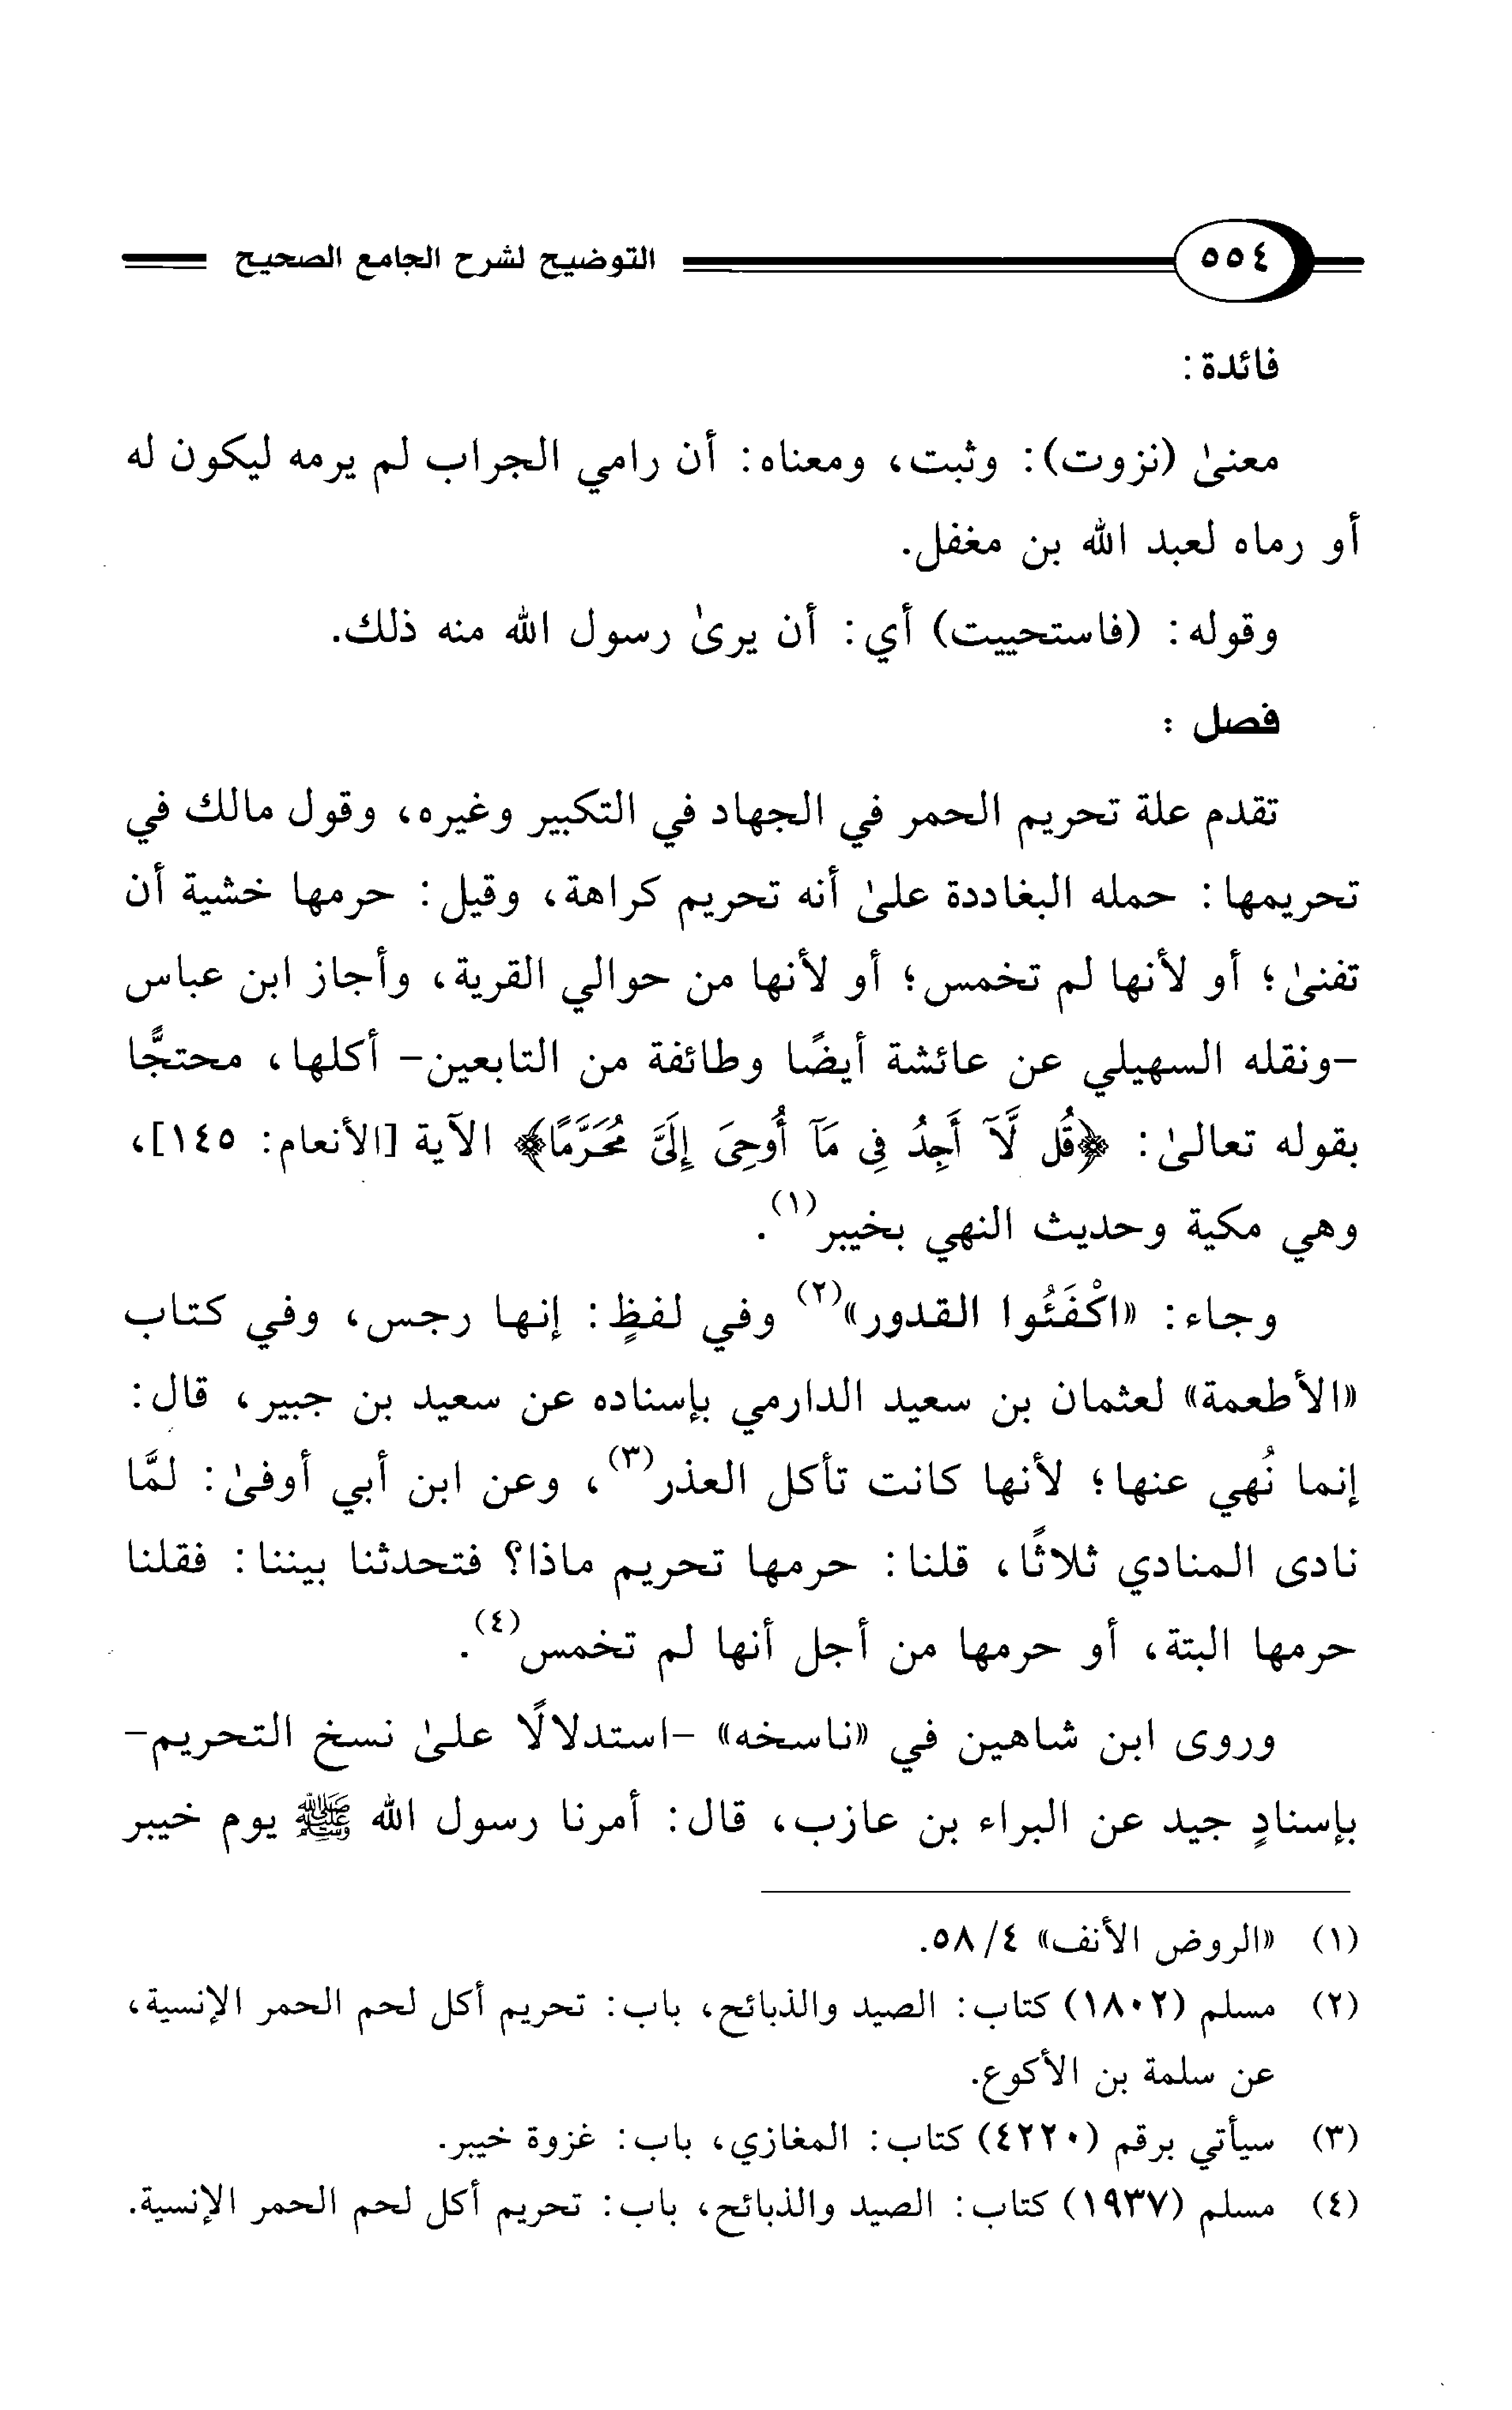 ٥٥٤ التوضيح لشرح الجامع الصحيح
فائدة:
معنىٰ (نزوت): وثبت، ومعناه: أن رامي الجراب لم يرمه ليكون له
أو رماه لعبد الله بن مغفل.
وقوله: (فاستحييت) أي: أن يرىٰ رسول الله منه ذلك.
فصل:
تقدم علة تحريم الحمر في الجهاد في التكبير وغيره، وقول مالك في
تحريمها: حمله البغاددة علىٰ أنه تحريم كراهة، وقيل: حرمها خشية أن
تفنىٰ؛ أو لأنها لم تخمس؛ أو لأنها من حوالي القرية، وأجاز ابن عباس
-ونقله السهيلي عن عائشة أيضًا وطائفة من التابعين- أكلها، محتجًّا
بقوله تعالىٰ: ﴿قُل لَّآ أَجِدُ فِى مَآ أُوحِىَ إِلَىَّ مُحَرَّمًا﴾ الآية [الأنعام: ١٤٥]،
وهي مكية وحديث النهي بخيبر(١).
وجاء: «اكْفَئُوا القدور»(٢) وفي لفظٍ: إنها رجس، وفي كتاب
«الأطعمة» لعثمان بن سعيد الدارمي بإسناده عن سعيد بن جبير، قال:
إنما نُهي عنها؛ لأنها كانت تأكل العذر(٣)، وعن ابن أبي أوفىٰ: لمَّا
نادى المنادي ثلاثًا، قلنا: حرمها تحريم ماذا؟ فتحدثنا بيننا: فقلنا
حرمها البتة، أو حرمها من أجل أنها لم تخمس(٤).
وروى ابن شاهين في «ناسخه» -استدلالًا علىٰ نسخ التحريم-
بإسنادٍ جيد عن البراء بن عازب، قال: أمرنا رسول الله ﷺ يوم خيبر
(١) «الروض الأنف» ٤/ ٥٨.
(٢) مسلم (١٨٠٢) كتاب: الصيد والذبائح، باب: تحريم أكل لحم الحمر الإنسية،
عن سلمة بن الأكوع.
(٣) سيأتي برقم (٤٢٢٠) كتاب: المغازي، باب: غزوة خيبر.
(٤) مسلم (١٩٣٧) كتاب: الصيد والذبائح، باب: تحريم أكل لحم الحمر الإنسية.